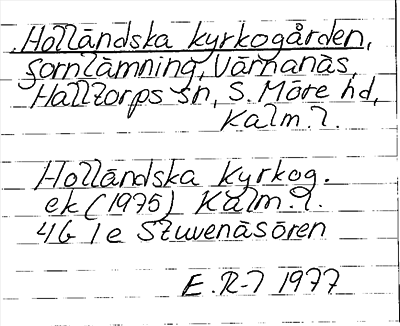 Holländska kyrkogården,
fornlämning, Värnanäs,
Halltorps sn, S. Möre hd,
Kalm. l.
Holländska kyrkog.
ek (1975) Kalm. l.
4G 1e Stuvenäsören
E. R-7 1977